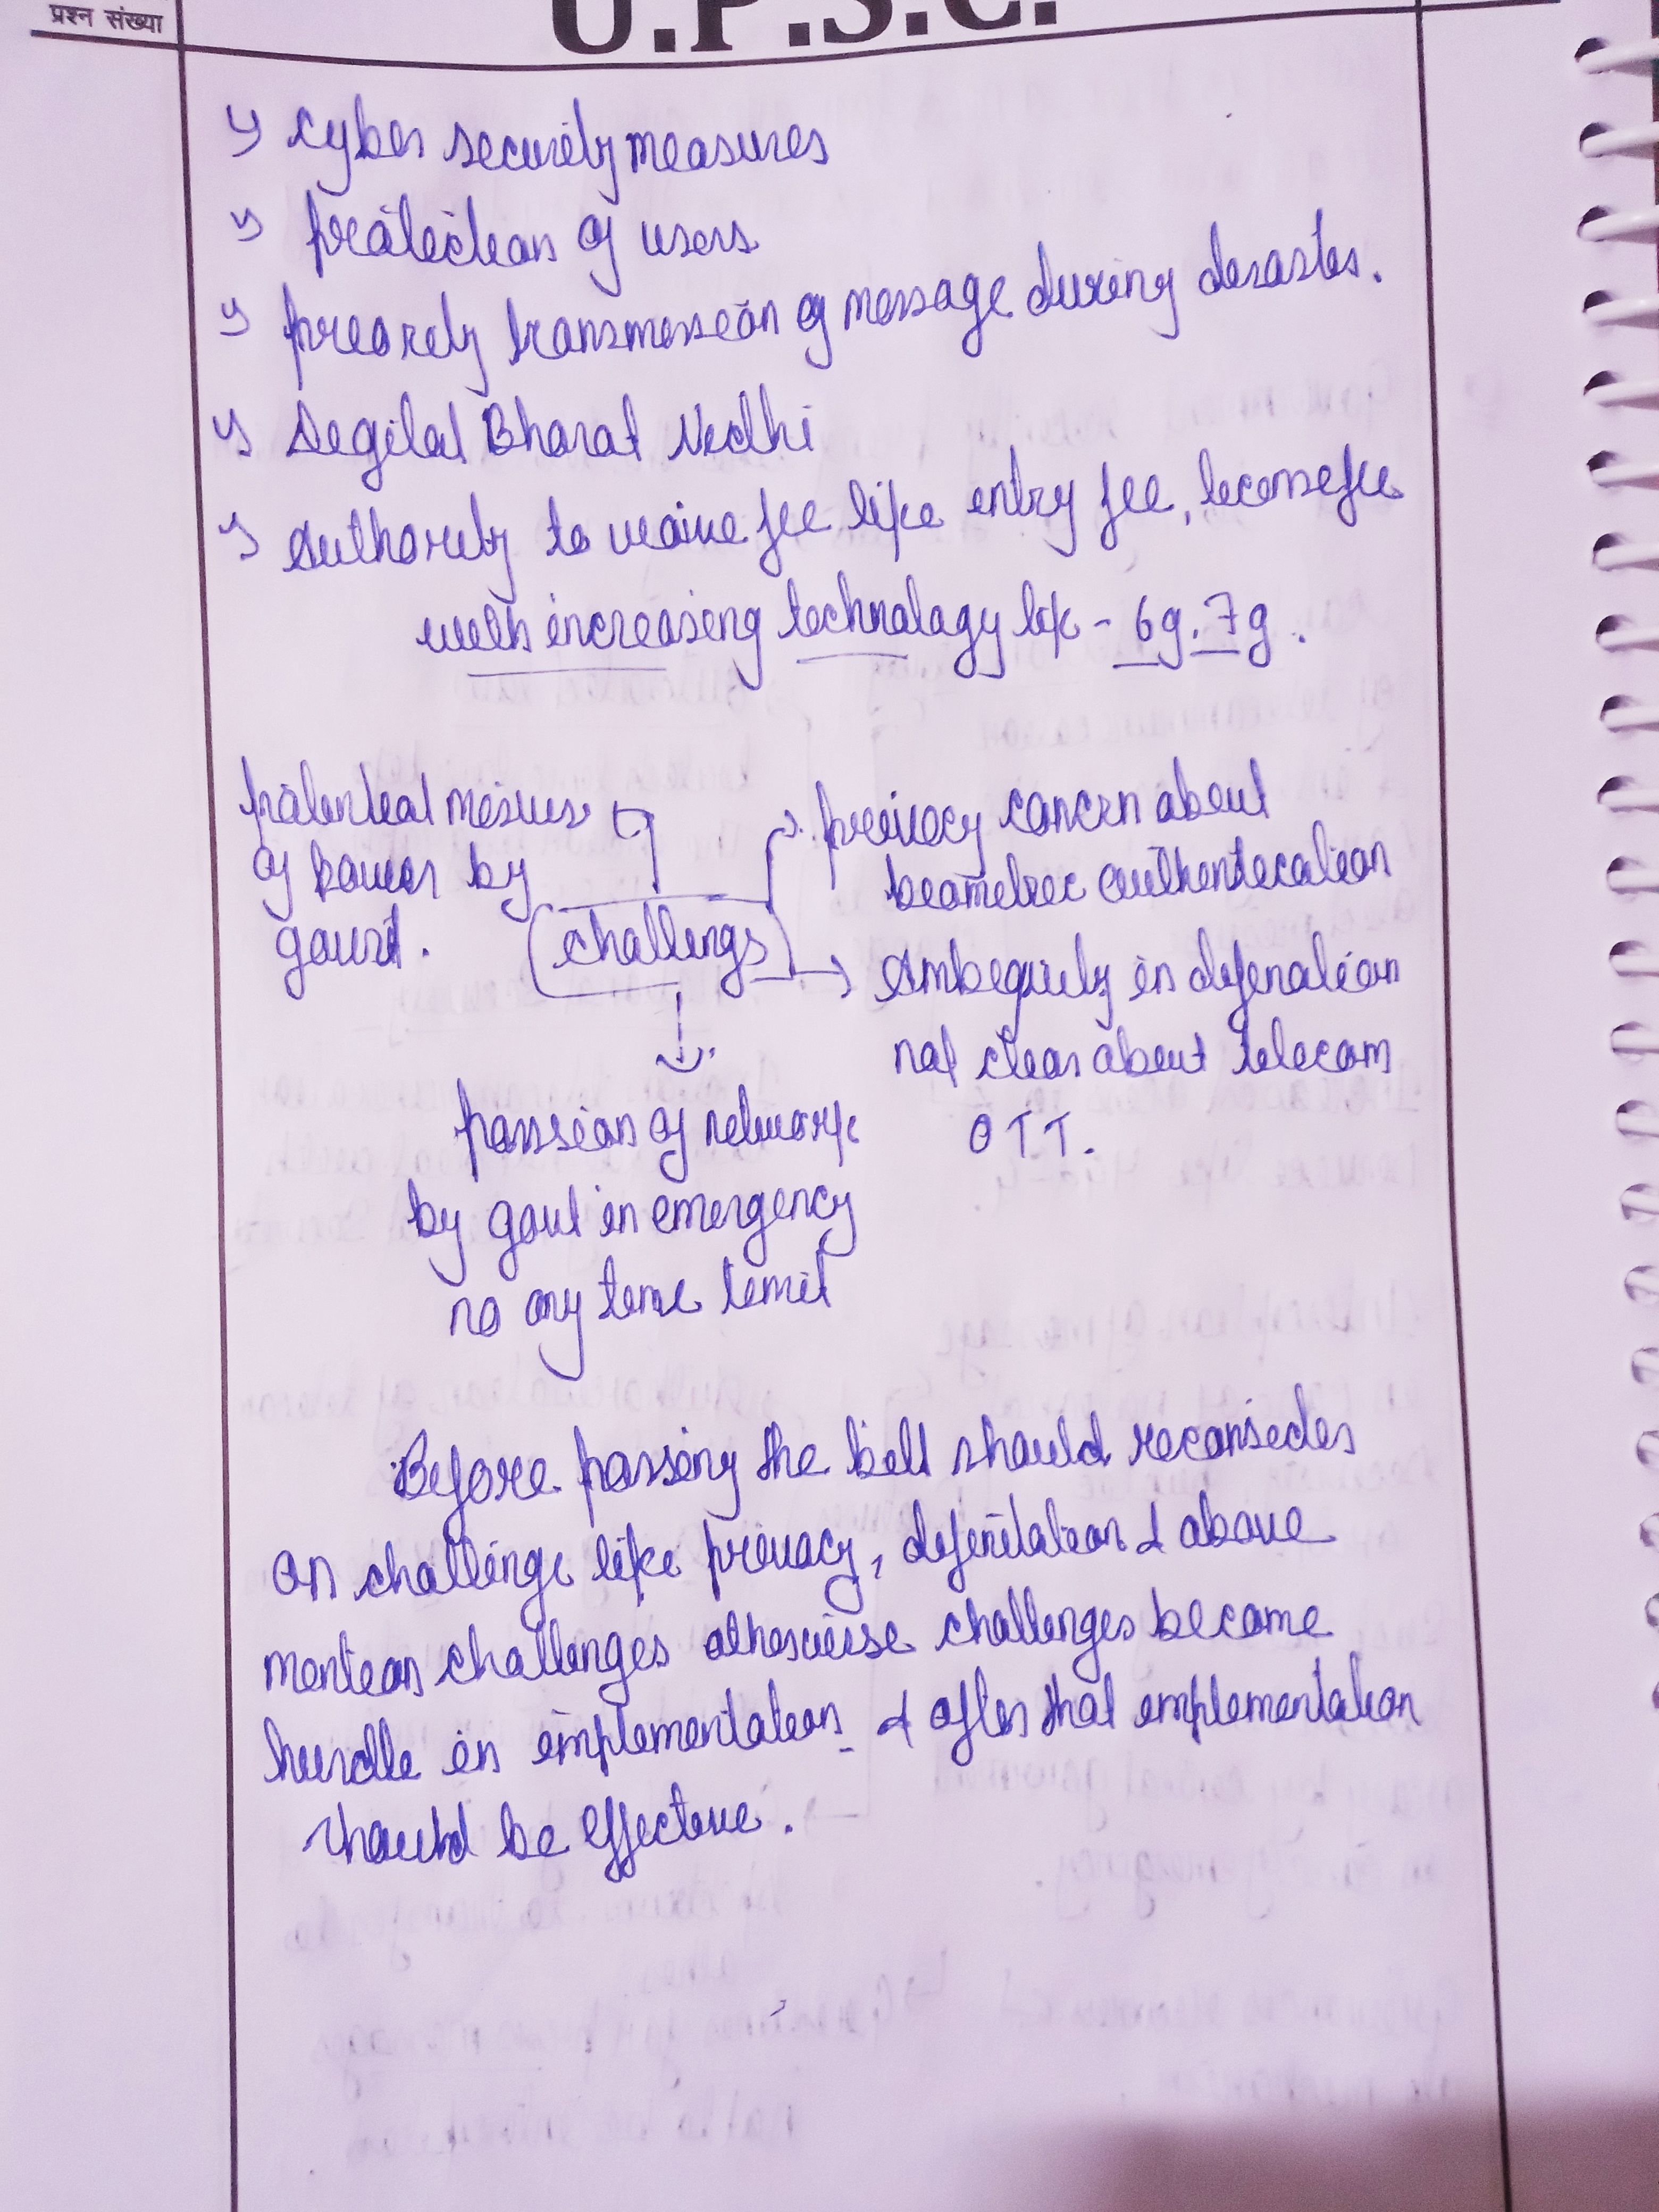 प्रश्न संख्या
U.P.S.C.
→ cyber security measures
→ protection of users
→ priority transmission of message during disaster.
→ Digital Bharat Nidhi
→ Authority to waive fee like entry fee, licensefee
with increasing technology lik - 6g, 7g.
potential misuse
of power by
govrt.
challengs
privacy concrn about
biometric authentication
Ambiguity in defination
not clear about telecom
OTT.
possion of network
by govt in emergency
no any time limit
Before passing the bill should reconsider
on challenge like privacy, definitation & above
mention challenges otherwise challenges become
hurdle in implementation & after that implementation
should be effective.